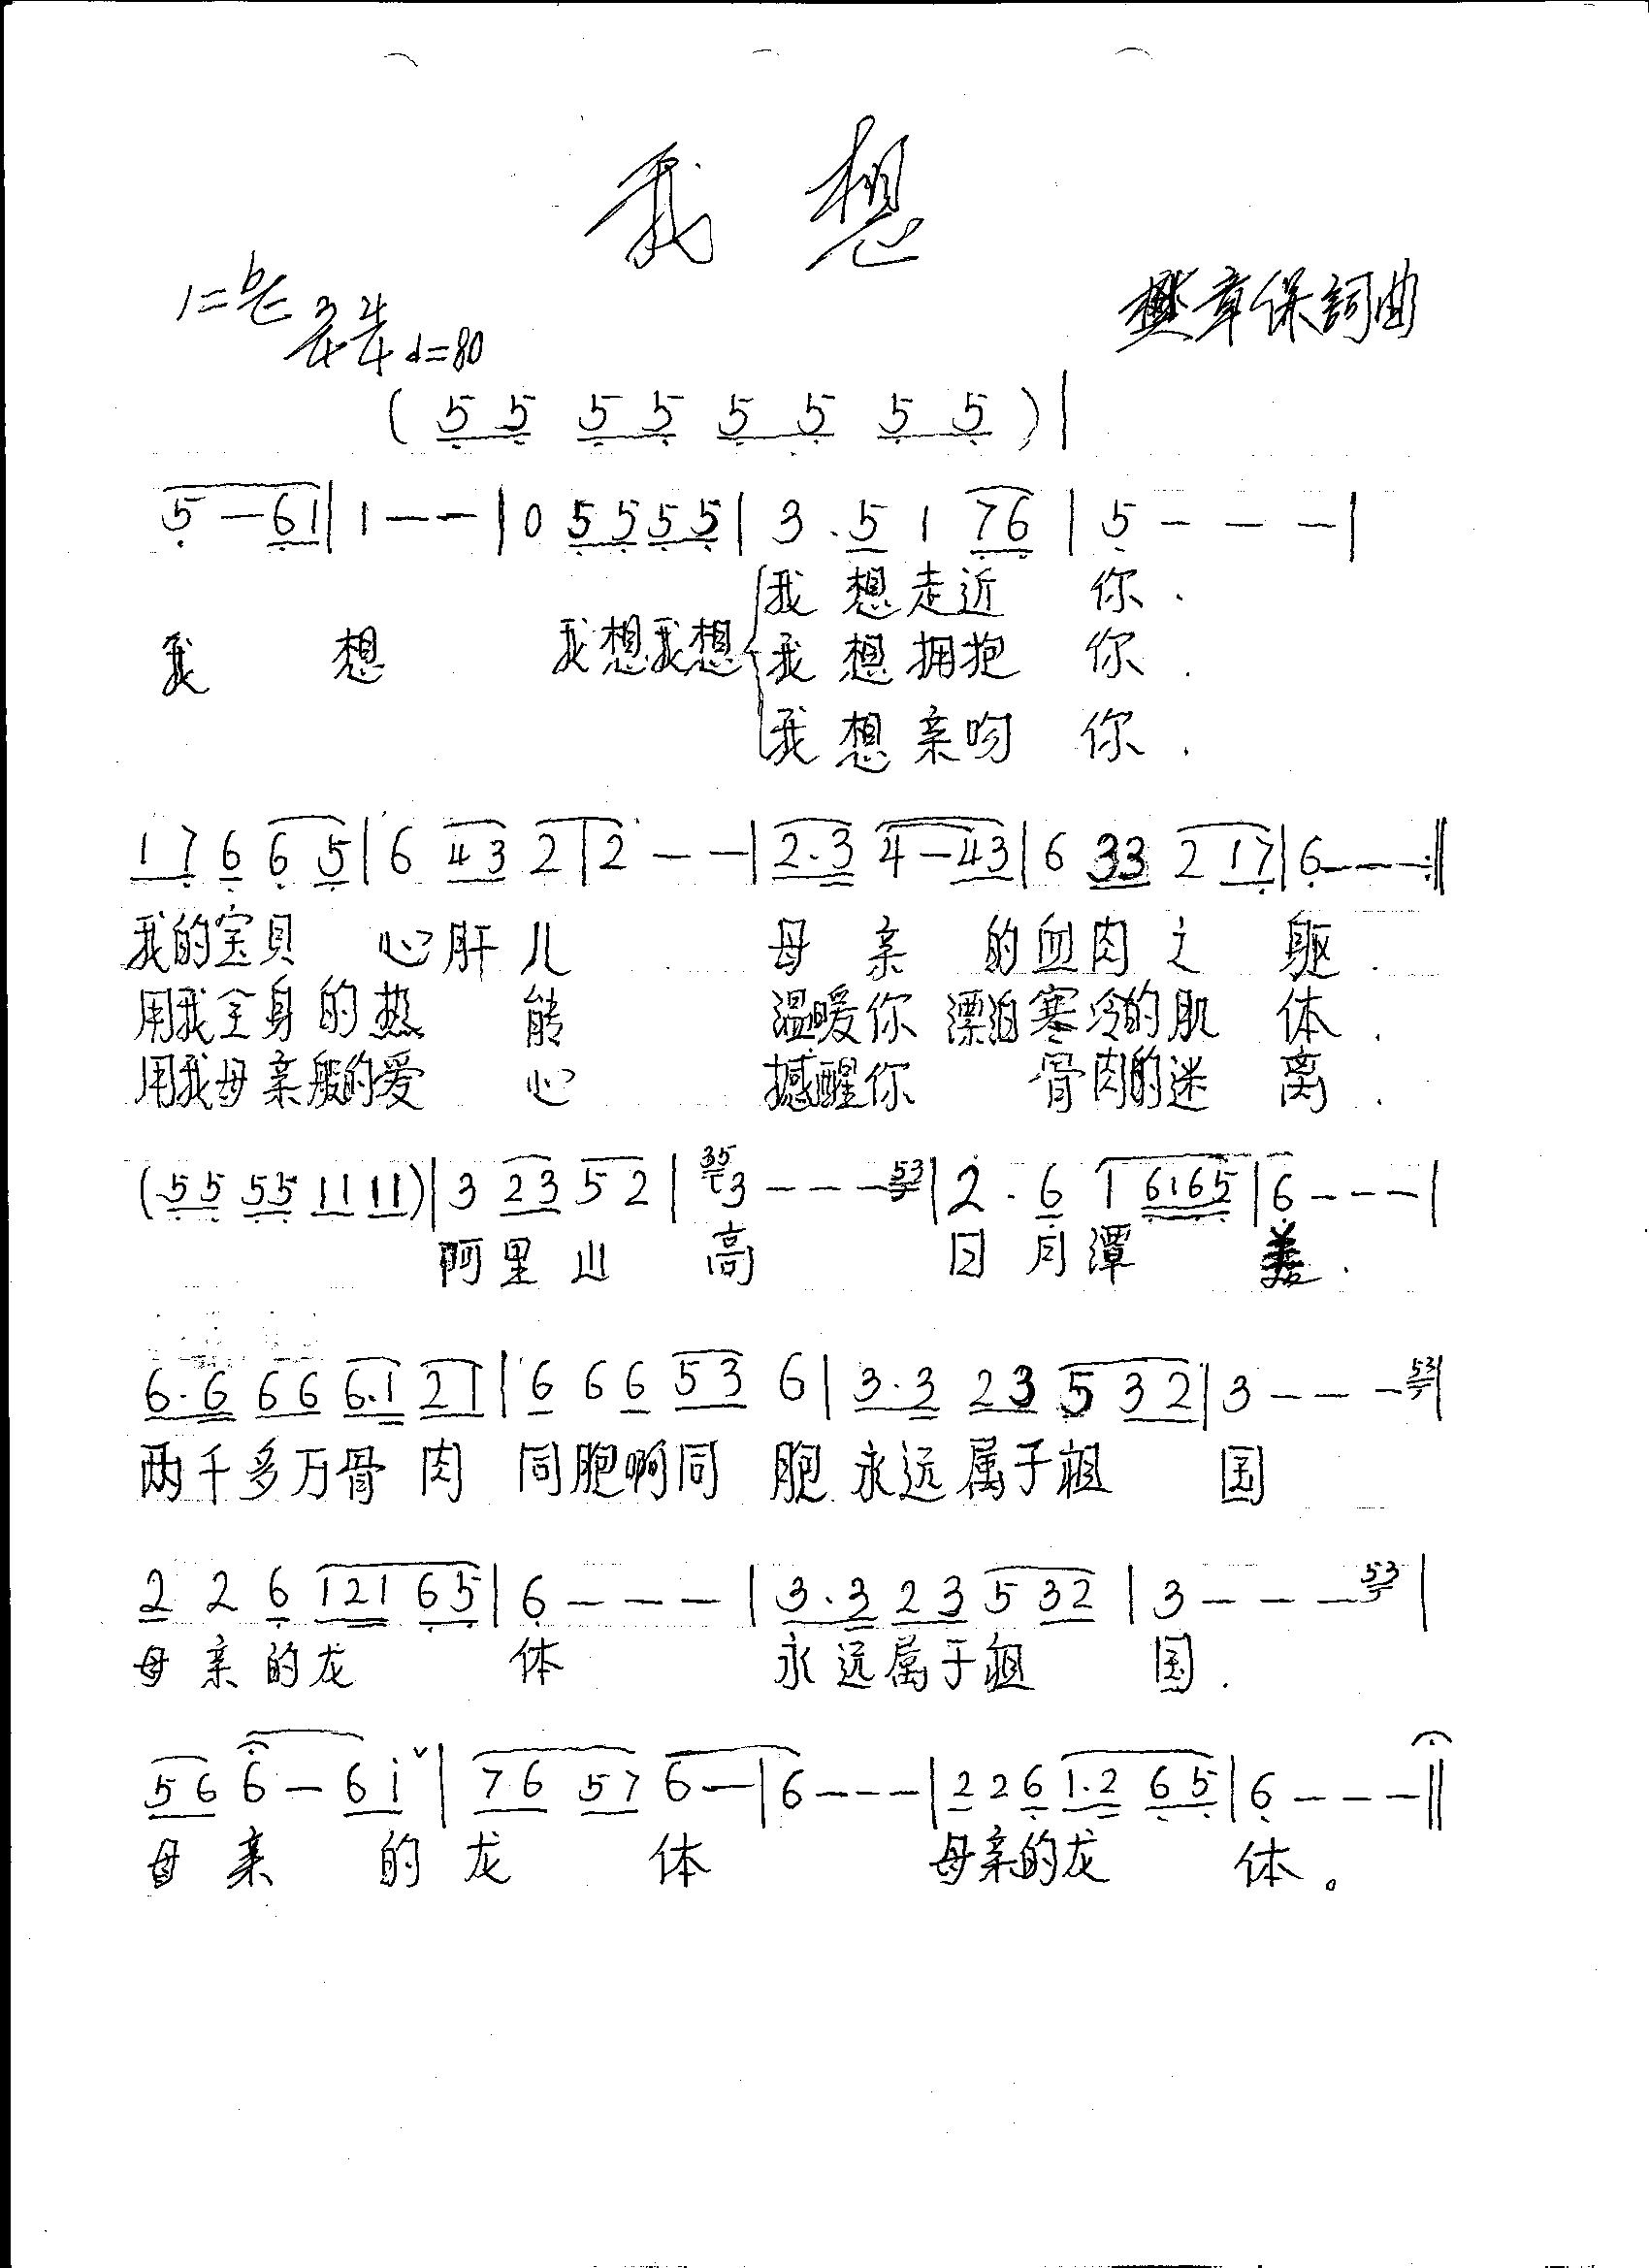 我 想
1=bE 3/4 4/4 ♩=80
樊章保詞曲
( 5 5 5 5 5 5 5 5 ) |
5 — 6 1 | 1 — — | 0 5 5 5 5 | 3 . 5 1 7 6 | 5 - - - |
我想走近 你.
我 想 我想我想 我想拥抱 你.
我想亲吻 你.
1 7 6 6 5 | 6 4 3 2 | 2 — — | 2 . 3 4 — 4 3 | 6 3 3 2 1 7 | 6 - - - :||
我的宝贝 心肝儿 母 亲 的血肉之 躯.
用我全身的热 能 温暖你 漂泊寒冷的肌 体.
用我母亲般的爱 心 撼醒你 骨肉的迷 离.
( 5 5 5 5 1 1 1 1 ) | 3 2 3 5 2 | 35 3 - - - 53 | 2 . 6 1 6 1 6 5 | 6 - - - |
阿里山 高 日月潭 美.
6 . 6 6 6 6 . 1 2 1 | 6 6 6 5 3 6 | 3 . 3 2 3 5 3 2 | 3 - - - 53 |
两千多万骨肉 同胞啊同 胞 永远属于祖 国
2 2 6 1 2 1 6 5 | 6 - - - | 3 . 3 2 3 5 3 2 | 3 - - - 53 |
母亲的龙 体 永远属于祖 国.
5 6 6 — 6 i ˅ | 7 6 5 7 6 — | 6 - - - | 2 2 6 1 . 2 6 5 | 6 - - - ||
母 亲 的 龙 体 母亲的龙 体。